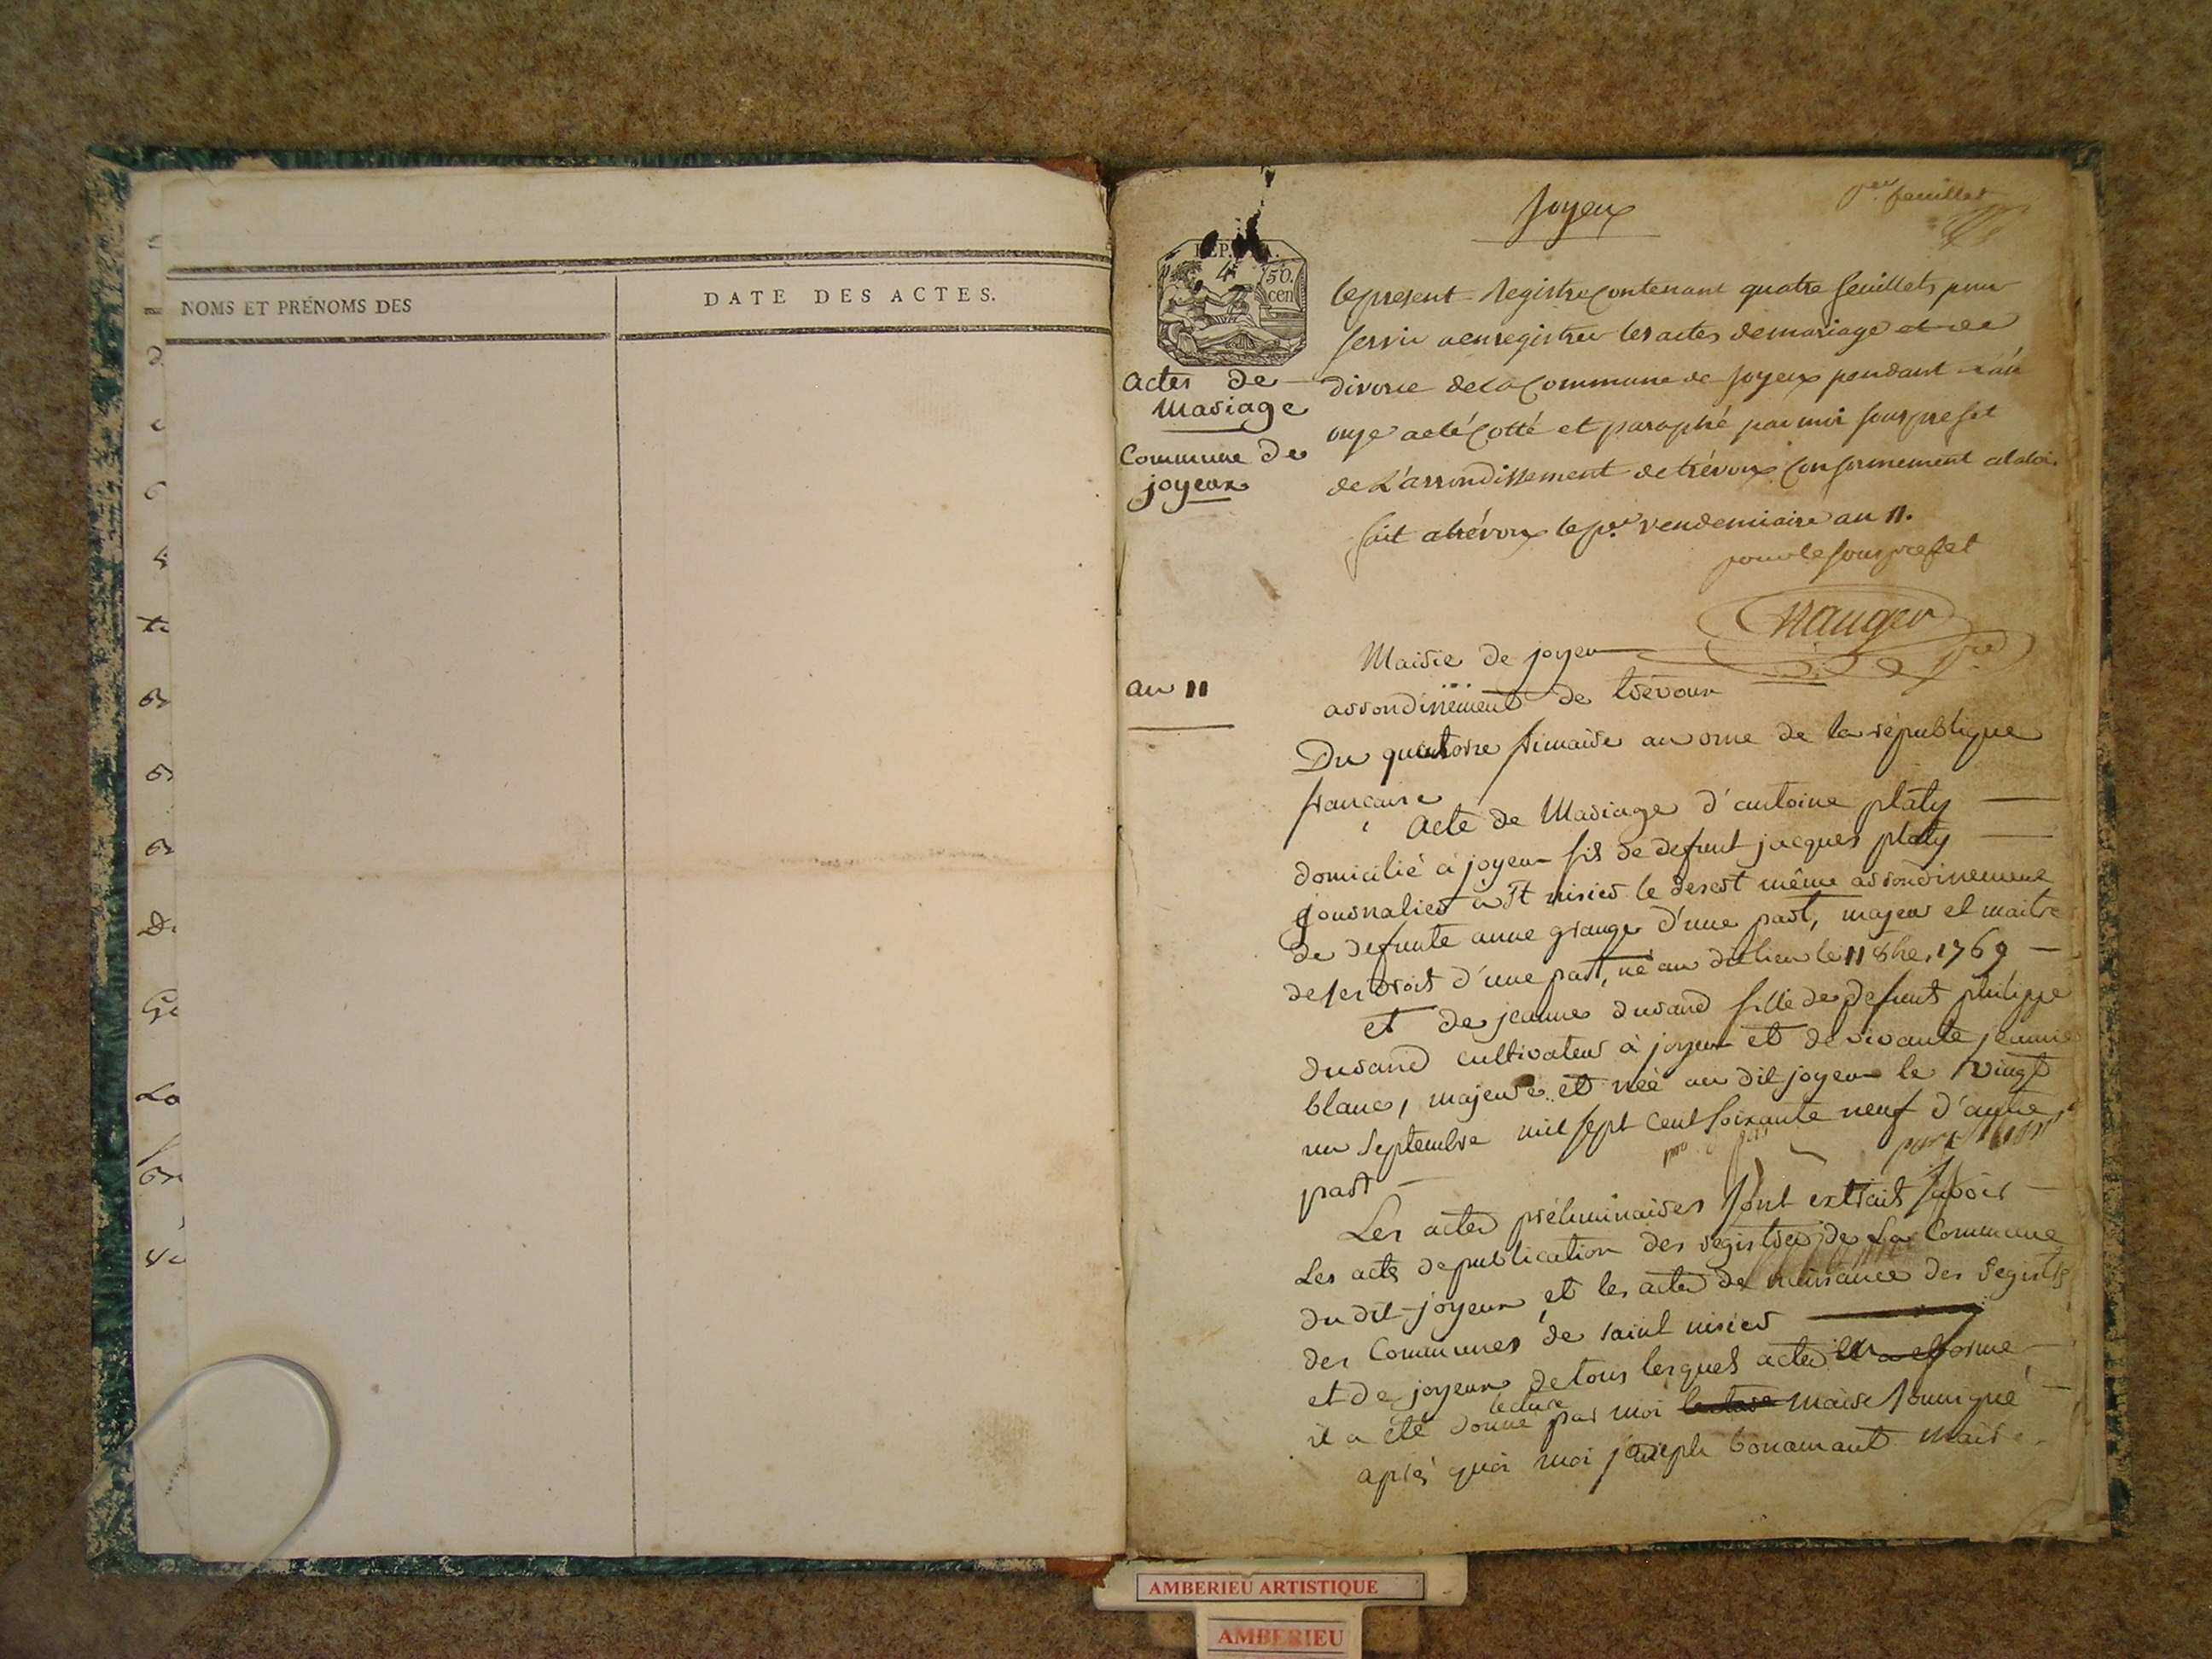 NOMS ET PRÉNOMS DES
DATE DES ACTES.
Joyeux
1er feuillet
50.
cen
Actes de
Mariage
Commune de
joyeux
le present registre contenant quatre feuillets pour
servir a enregistrer les actes de mariage et de
divorce de la Commune de Joyeux pendant l'an
onze a eté Cotté et paraphé par moi sous prefet
de L'arrondissement de trévoux conformement a la loi
fait a trévoux le per vendemiaire an 11.
pour le sous prefet
an 11
Mairie de joyeux
arrondissement de trévoux
Du quatorze frimaire an onze de la république
française
Acte de Mariage d'antoine platy
domicilié à joyeux fils de defunt jacques platy
journalier à St nisier le desert même arrondissement
de defunte anne grange d'une part, majeur et maitre
de ses droit d'une part, né au dit lieu le 11 8bre 1769
et de jeanne durand fille de defunt philippe
durand cultivateur à joyeux et de vivante jeanne
blanc, majeure et née au dit joyeux le vingt
un Septembre mil sept cent soixante neuf d'autre
part
Les actes préliminaires sont extrait savoir
Les acts de publication des registres de La Commune
du dit joyeux et les actes de naissance des registres
des Communes de saint nisier
et de joyeux de tous lesquels actes
il a été donné lecture par moi maire soussigné
après quoi moi joseph bonamant maire
AMBERIEU ARTISTIQUE
AMBERIEU